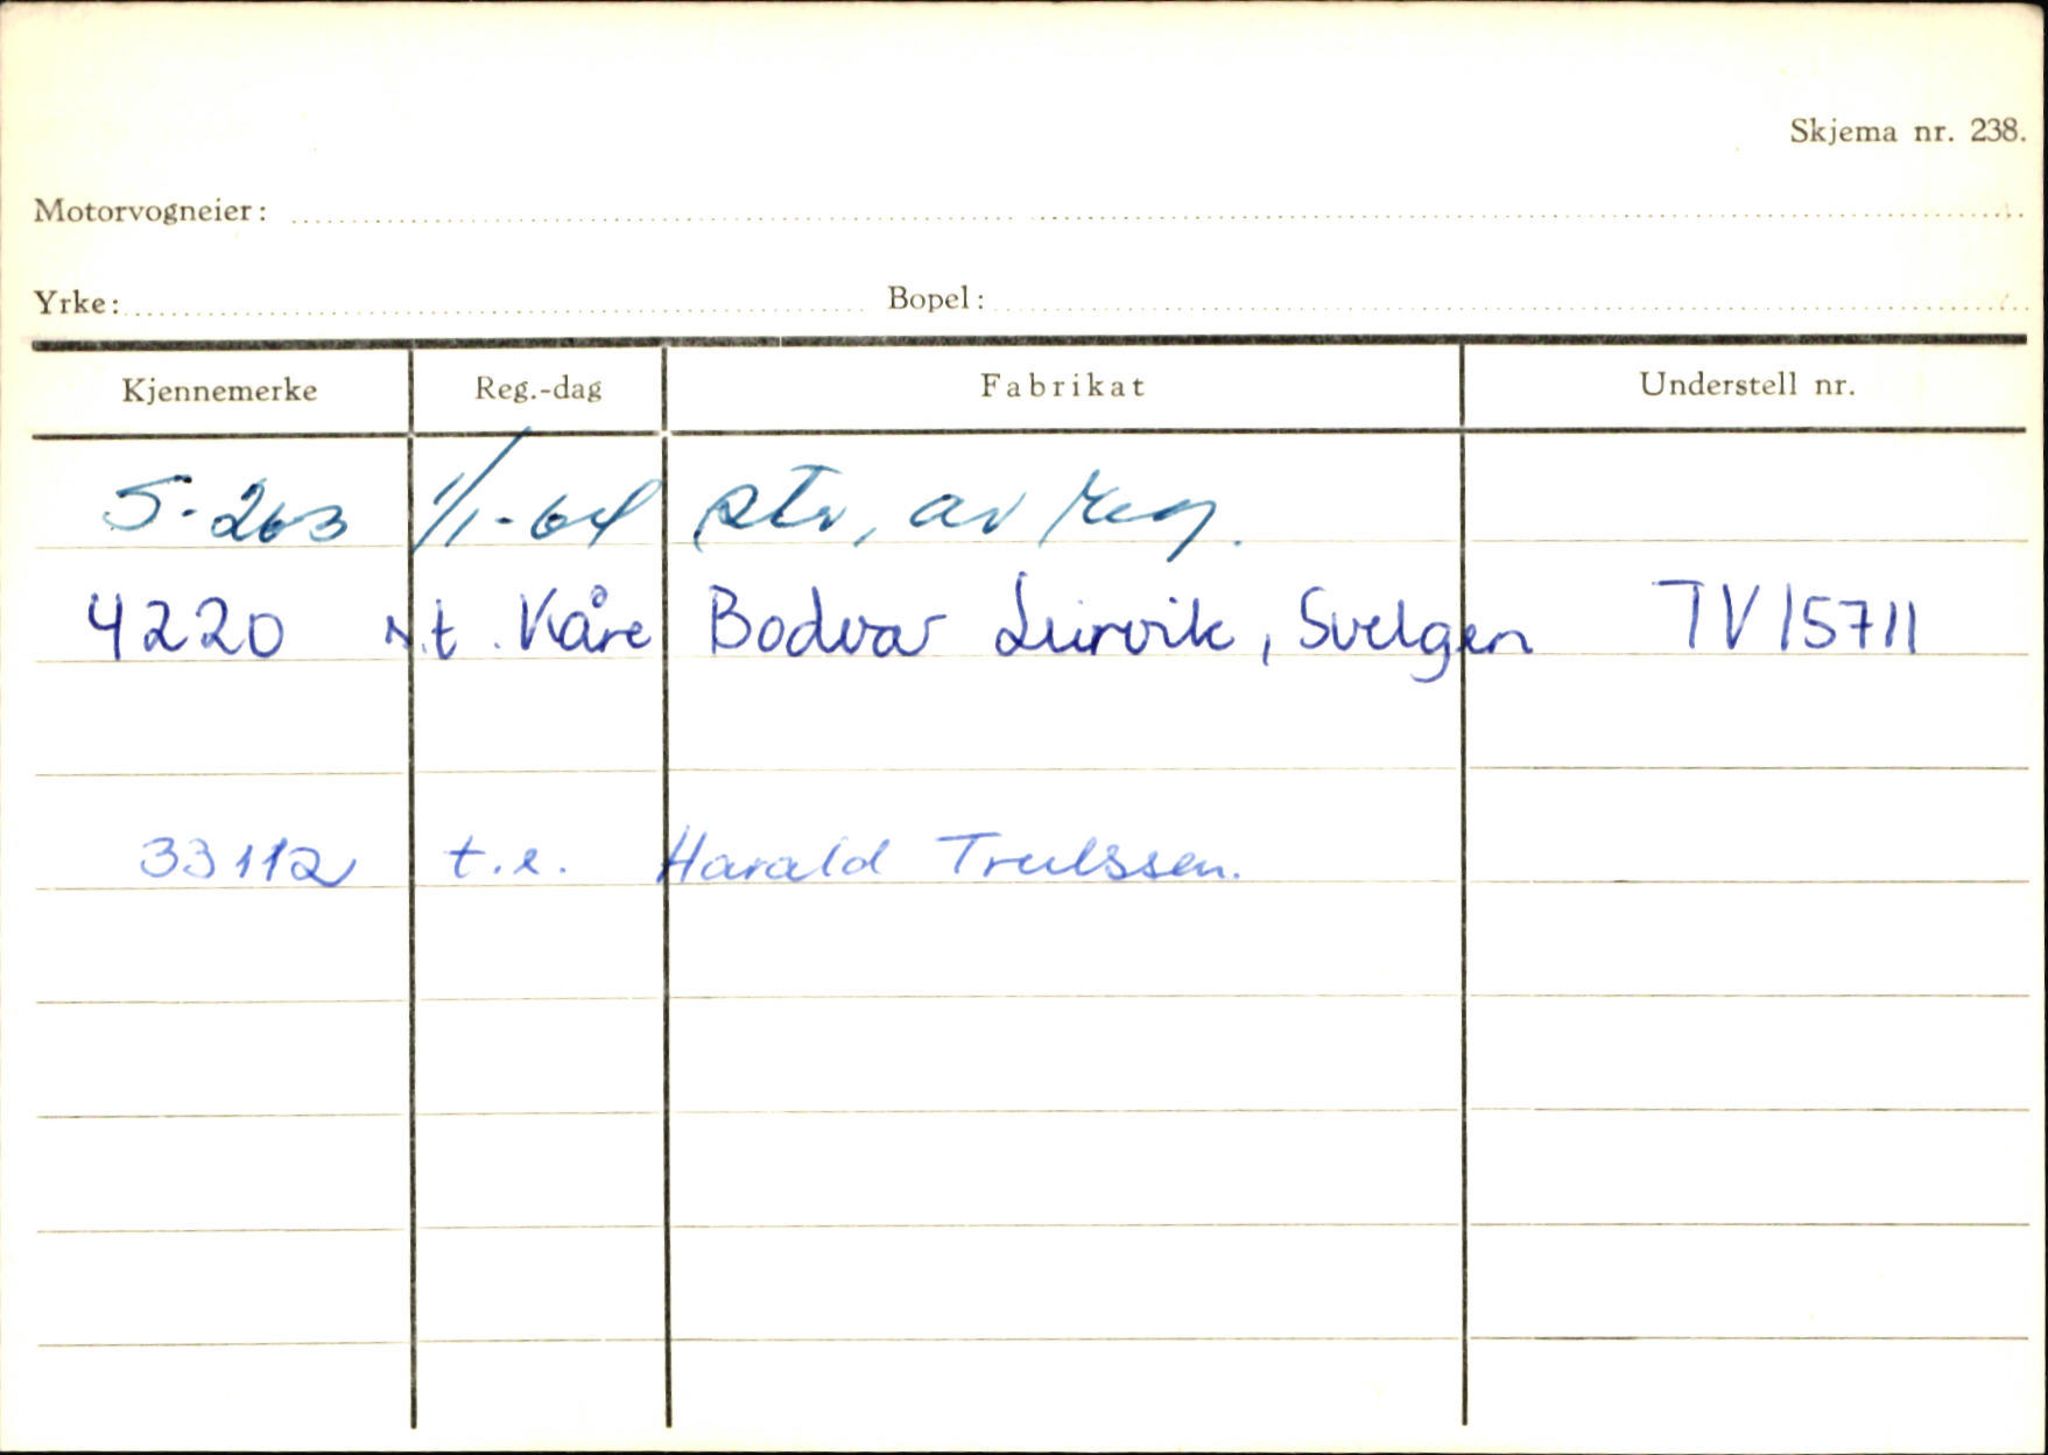 Skjema nr. 238.
Motorvogneier:
Yrke: Bopel:
Kjennemerke Reg.-dag Fabrikat Understell nr.
S-263 1/1-64 str. av reg.
4220 s.t. Kåre Bodvar Lurvik, Svelgen TV15711
33112 t.e. Harald Trulssen.